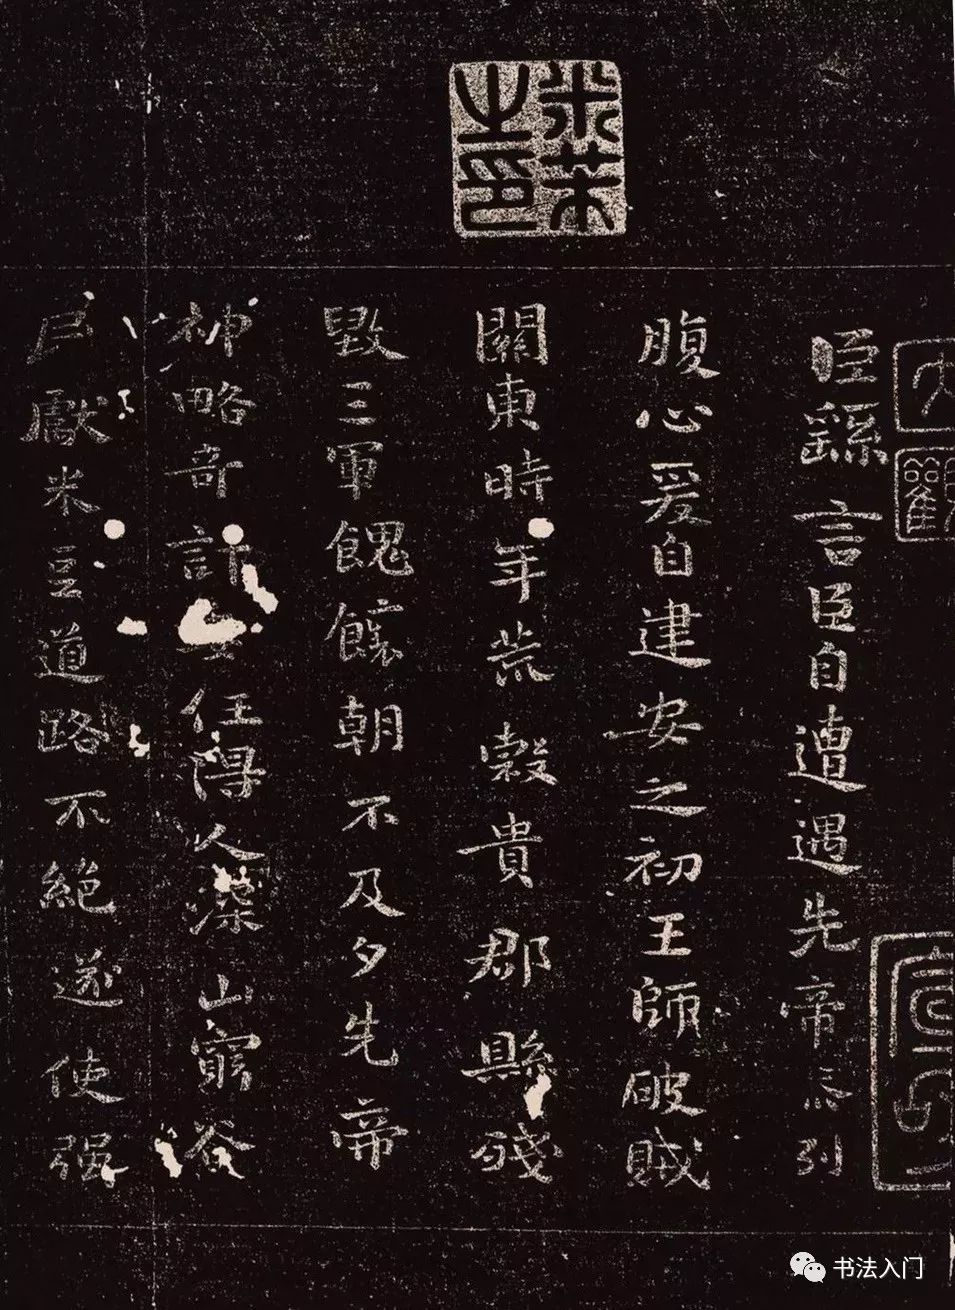 米芾之印
大觀
臣繇言臣自遭遇先帝忝列
腹心爰自建安之初王師破賊
關東時年荒穀貴郡縣殘
毀三軍餽饟朝不及夕先帝
神略奇計任得人深山窮谷
民獻米豆道路不絕遂使强
书法入门